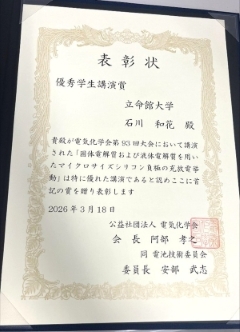 表彰状
優秀学生講演賞
立命館大学
石川 和花 殿
貴殿が電気化学会第93回大会において講演
された「固体電解質および液体電解質を用い
たマイクロサイズシリコン負極の充放電挙
動」は特に優れた講演であると認めここに首
記の賞を贈り表彰します
2026年3月18日
公益社団法人 電気化学会
会長 阿部 孝之
同 電池技術委員会
委員長 安部 武志